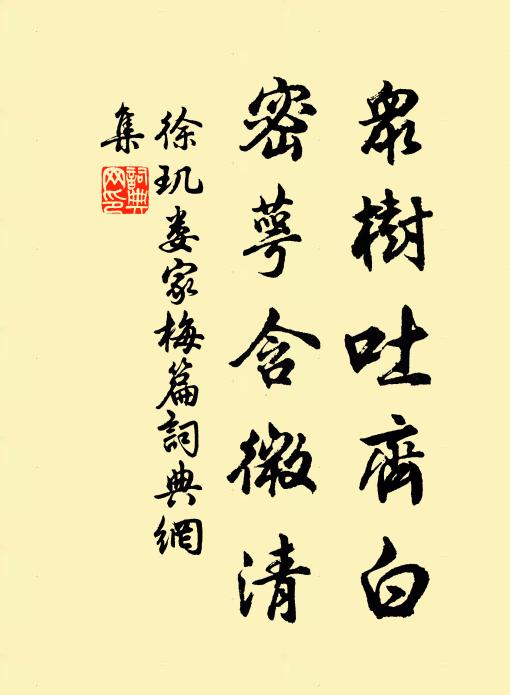 眾樹吐齊白
密萼含微清
徐玑娄家梅篇詞典網
集
詞典网印